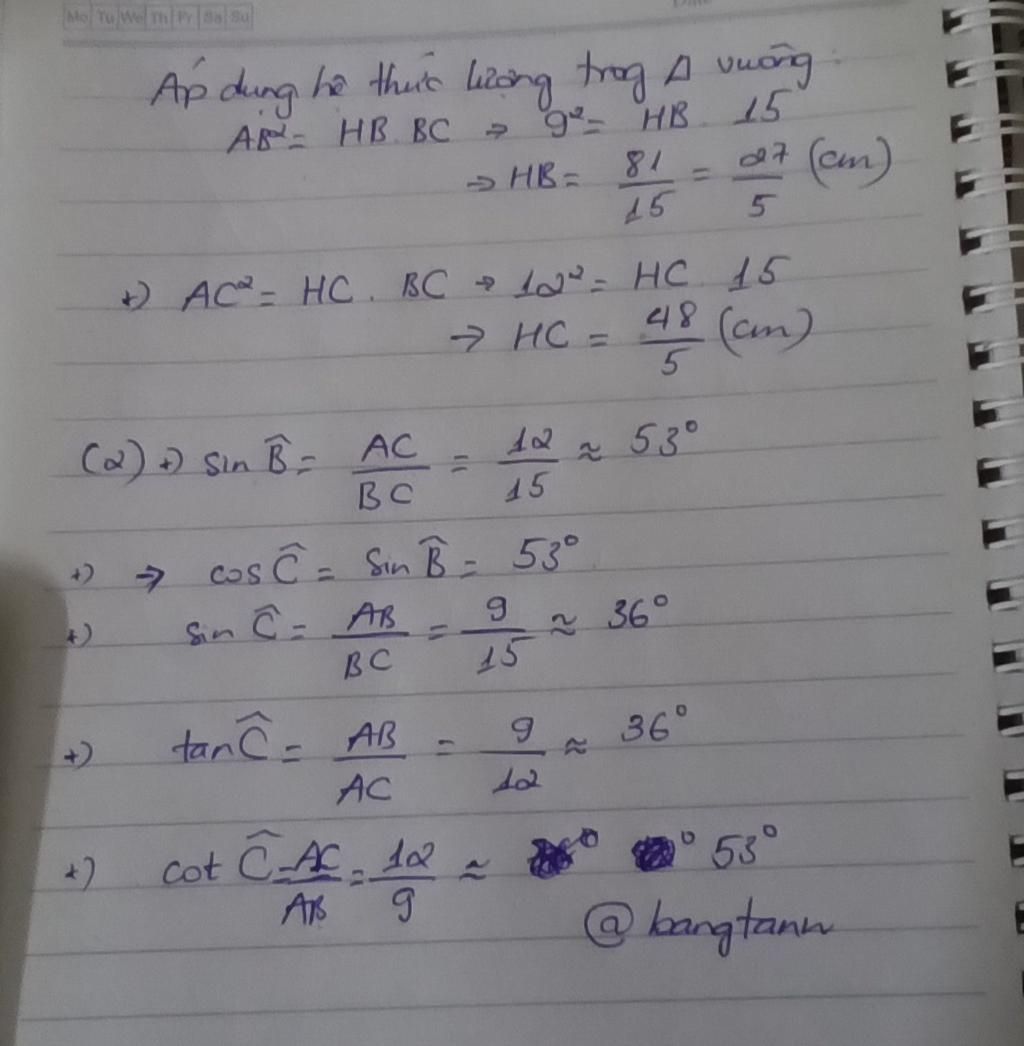 Mo Tu We Th Fr Sa Su
Áp dụng hệ thức lượng trog Δ vuông:
AB² = HB. BC → 9² = HB. 15
→ HB = 81/15 = 27/5 (cm)
+) AC² = HC. BC → 12² = HC. 15
→ HC = 48/5 (cm)
(2) +) sin B̂ = AC/BC = 12/15 ≈ 53°
+) → cos Ĉ = sin B̂ = 53°
+) sin Ĉ = AB/BC = 9/15 ≈ 36°
+) tan Ĉ = AB/AC = 9/12 ≈ 36°
+) cot Ĉ = AC/AB = 12/9 ≈ 53°
@bangtanw